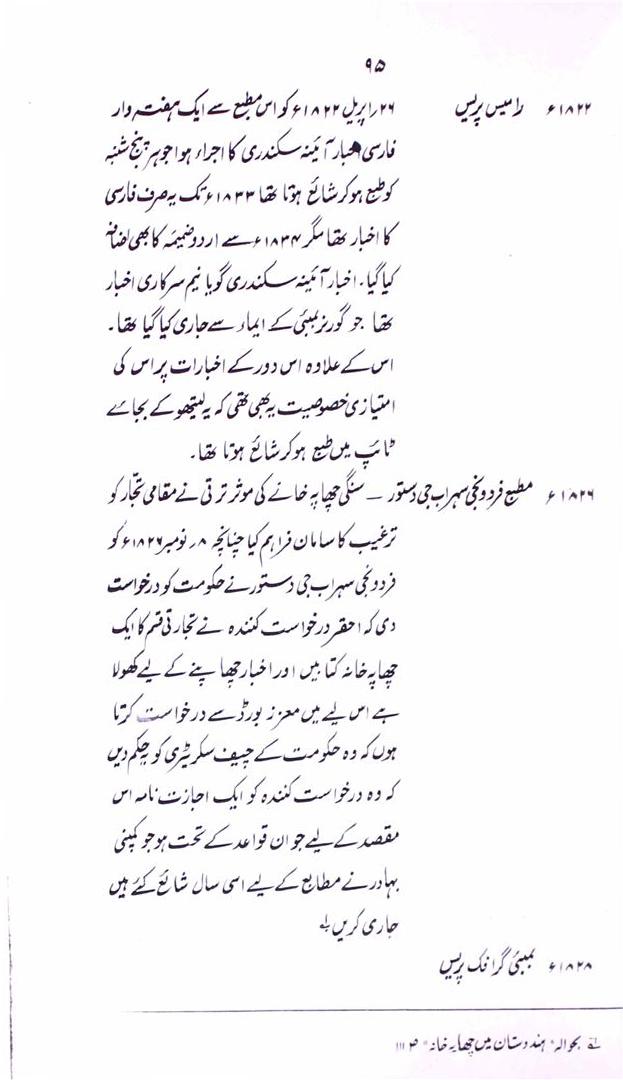 ۹۵
۱۸۲۲ء رامیس پریس ۲۶؍اپریل ۱۸۲۲ء کو اس مطبع سے ایک ہفتہ وار
فارسی اخبار آئینہ سکندری کا اجراء ہوا جو ہر پنج شنبہ
کو طبع ہوکر شائع ہوتا تھا ۱۸۳۳ء تک یہ صرف فارسی
کا اخبار تھا مگر ۱۸۳۴ء سے اردو ضمیمہ کا بھی اضافہ
کیا گیا۔ اخبار آئینہ سکندری گویا نیم سرکاری اخبار
تھا جو گورنر بمبئی کے ایماء سے جاری کیا گیا تھا۔
اس کے علاوہ اس دور کے اخبارات پر اس کی
امتیازی خصوصیت یہ بھی تھی کہ یہ لیتھو کے بجائے
ٹائپ میں طبع ہوکر شائع ہوتا تھا۔
۱۸۲۶ء مطبع فردونجی سہراب جی دستور – سنگی چھاپہ خانے کی موثر ترقی نے مقامی تجّار کو
ترغیب کا سامان فراہم کیا چنانچہ ۸؍ نومبر ۱۸۲۶ء کو
فردونجی سہراب جی دستور نے حکومت کو درخواست
دی کہ احقر درخواست کنندہ نے تجارتی قسم کا ایک
چھاپہ خانہ کتابیں اور اخبار چھاپنے کے لیے کھولا
ہے اس لیے میں معزز بورڈ سے درخواست کرتا
ہوں کہ وہ حکومت کے چیف سکریٹری کو یہ حکم دیں
کہ وہ درخواست کنندہ کو ایک اجازت نامہ اس
مقصد کے لیے جو ان قواعد کے تحت ہو جو کمپنی
بہادر نے مطابع کے لیے اسی سال شائع کئے ہیں
جاری کریں لہ
۱۸۲۸ء بمبئی گرافک پریس
لہ بحوالہ "ہندوستان میں چھاپہ خانہ" ص ۱۱۱